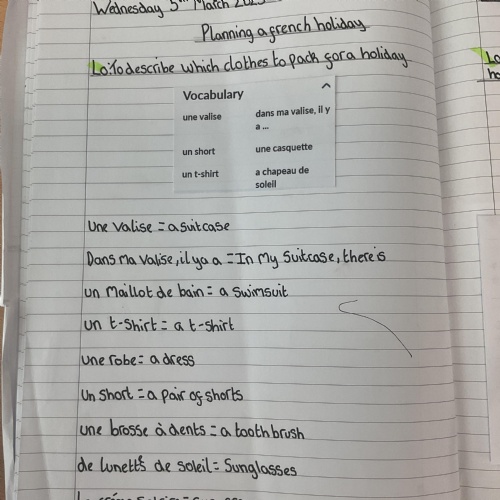 Wednesday 5th March
Planning a french holiday
Lo: To describe which clothes to pack for a holiday
Vocabulary
une valise
dans ma valise, il y a ...
un short
une casquette
un t-shirt
a chapeau de soleil
Une valise = a suitcase
Dans ma valise, il ya a = In my suitcase, there is
un maillot de bain = a swimsuit
un t-shirt = a t-shirt
une robe = a dress
un short = a pair of shorts
une brosse à dents = a tooth brush
de lunettes de soleil = Sunglasses